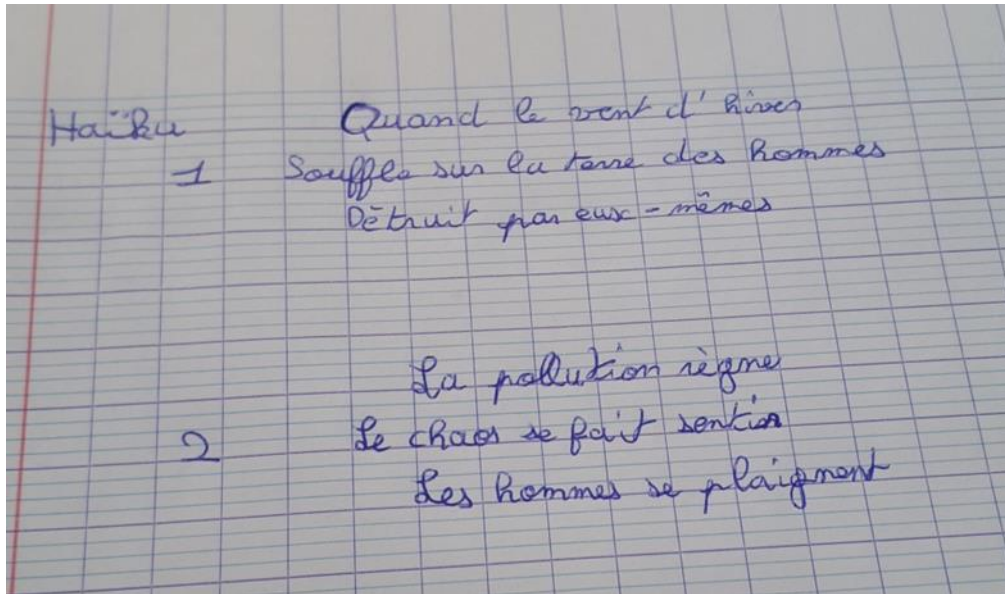 Haïku Quand le vent d'hiver
1 Souffle sur la terre des hommes
Détruit par eux-mêmes
La pollution règne
2 Le chaos se fait sentir
Les hommes se plaignent